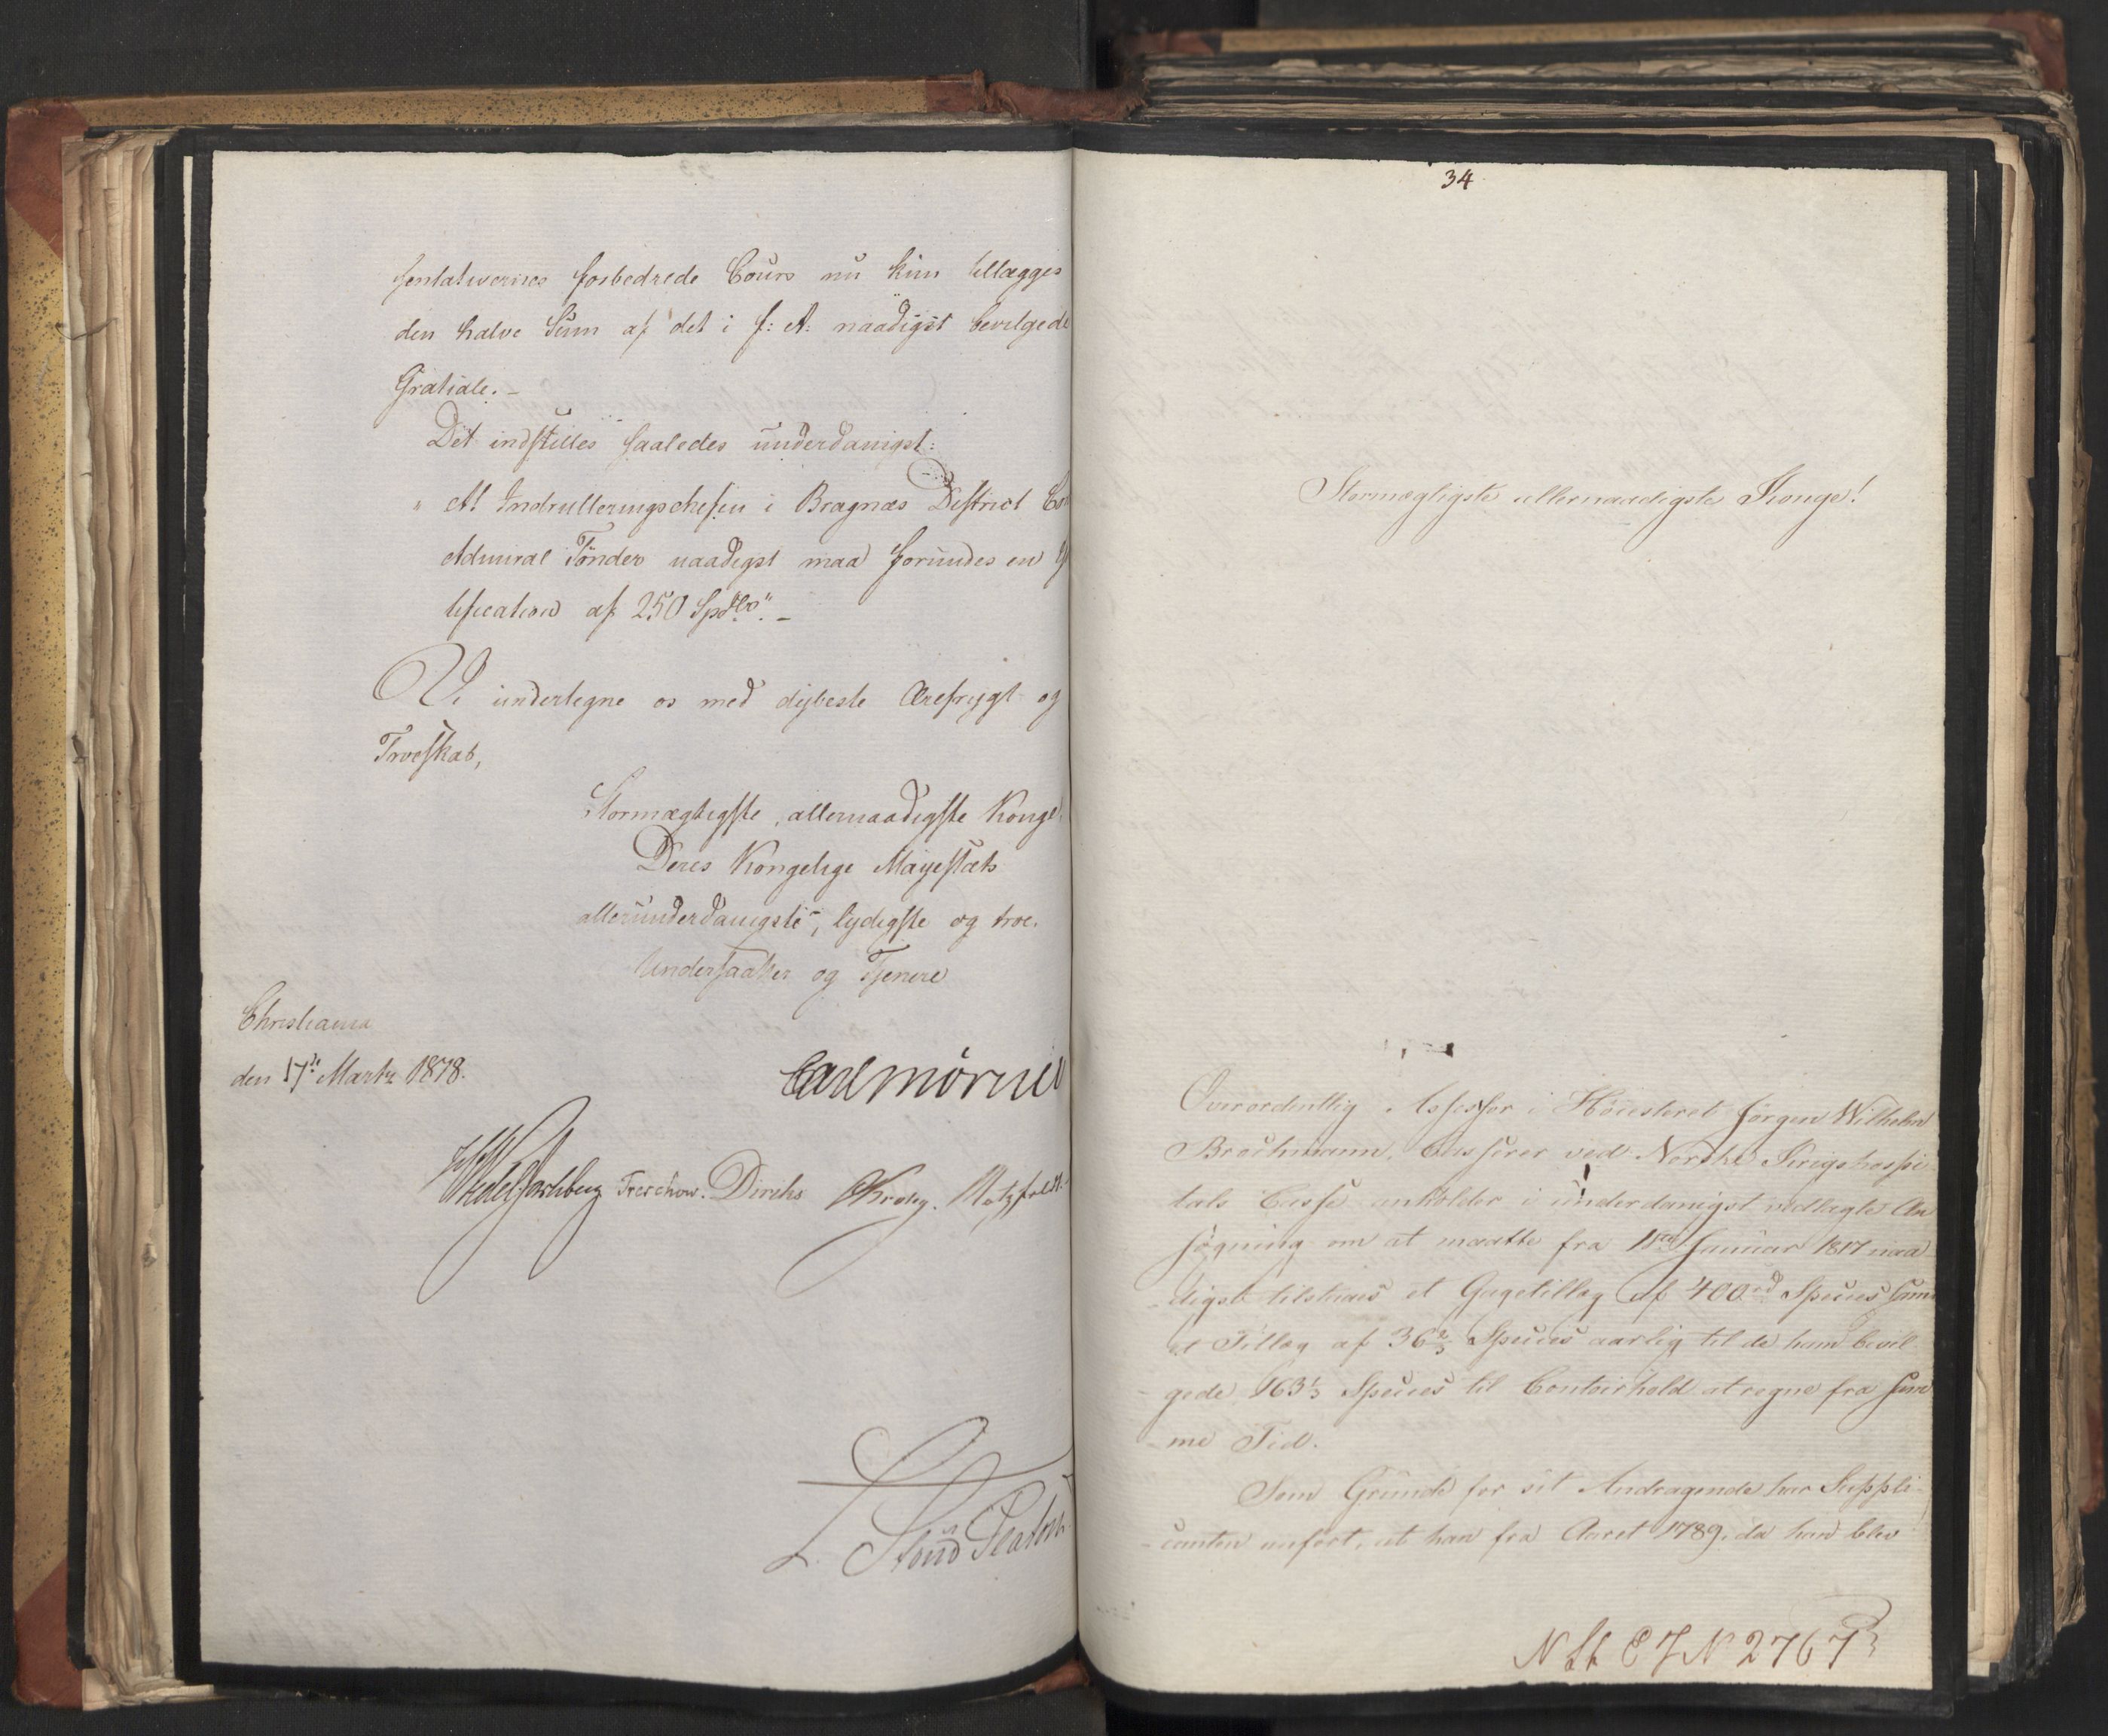 sentativernes forbedrede Cours nu kun tillægges
den halve Sum af det i f: A: naadigst bevilgede
Gratiale. -
Det indstilles saaledes underdanigst:
" At Indrulleringschefen i Bragnæs District
Admiral Tønder naadigst maa forundes en
tification af 250 Spdlr". -
Vi undertegne os med dybeste Ærefrygt og
Troeskab,
Stormægtigste, allernaadigste Konge!
Deres Kongelige Mayestæts
allerunderdanigste, lydigste og troe
Undersaatter og Tjenere
Christiania
den 17de Martz 1818.
Carl Mörner
Wedel Jarlsberg Treschow. Diriks Krohg. Motzfeldt.
L. Stoud Platou
34
Stormægtigste allernaadigste Konge!
Overordentlig Assessor i Höiesteret Jörgen Wilhelm
Brochmann, Casserer ved Norske Krigshospi-
tals Casse anholder i underdanigst vedlagte An
søgning om at maatte fra 1ste Januar 1817 naa-
digst tilstaaes et Gagetillæg af 400 rd Species samt
et Tillæg af 36 2/3 Species aarlig til de ham bevil-
gede 163 1/3 Species til Contoirhold at regne fra sam
me Tid.
Som Grunde for sit Andragende har Suppli-
canten anført, at han fra Aaret 1789, da han blev
N 2767